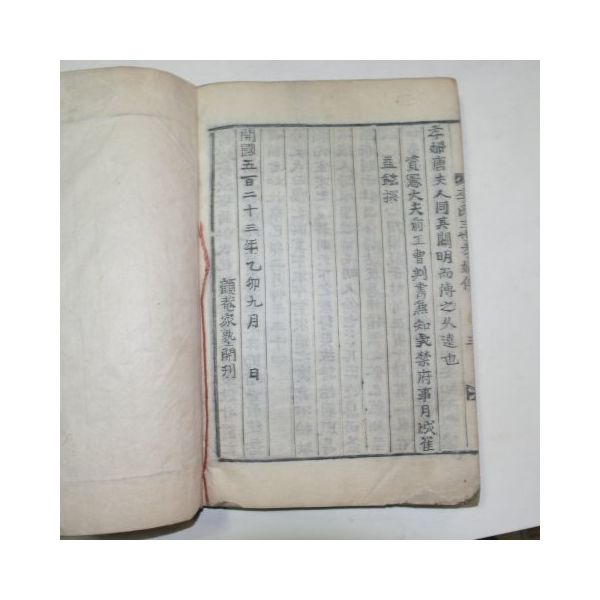 孝婦唐夫人同其闡明而傳之久遠也
資憲大夫前工曹判書兼知義禁府事月城崔
益鉉撰
開國五百二十三年乙卯九月 日
顧菴家塾開刊